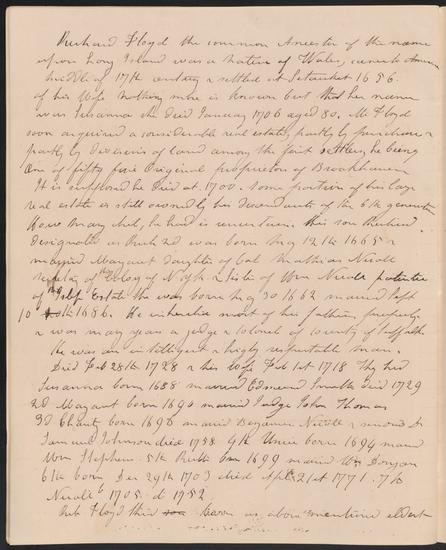 Richard Floyd the common Ancestor of the name
upon Long Island was a native of Wales, came to America
middle of 17th century & settled at Setauket 1656.
of his Wife nothing more is known but that her name
was Susanna she died January 1706 aged 80. Mr Floyd
soon acquired a considerable real estate, partly by purchase &
partly by divisions of land among the first settlers, he being
one of fifty five Original proprietors of Brookhaven
It is supposed he died at 1700. some portion of his large
real estate is still owned by his descendants of the 6th generation
How many chil, he had is uncertain. His son Richard
Designated as Rich 2d was born May 12th 1665 &
married Margaret daughter of Col Matthias Nicoll
secretary of the Colony of N York & sister of Wm Nicoll patentee
of Islip Estate She was born May 30 1662 married Sept
10 th 1686. He inherited most of his fathers property
& was many years a judge & colonel of county of Suffolk.
He was an intelligent & highly respectable man.
Died Feb 28th 1728 & his wife Feb 1st 1718 They had
Susanna born 1688 married Edmund Smith died 1729
2d Margaret born 1690 married Judge John Thomas
3d Charity born 1692 married Benjamin Nicoll & second Dr
Samuel Johnson died 1758 4th Eunice born 1694 married
Wm Stephens. 5th Ruth born 1699 married Wm Dongan
6th born Dec 29th 1703 died Apl 21st 1771. 7th
Nicoll b 1705. d 1752
Rich Floyd third born as above mentioned eldest